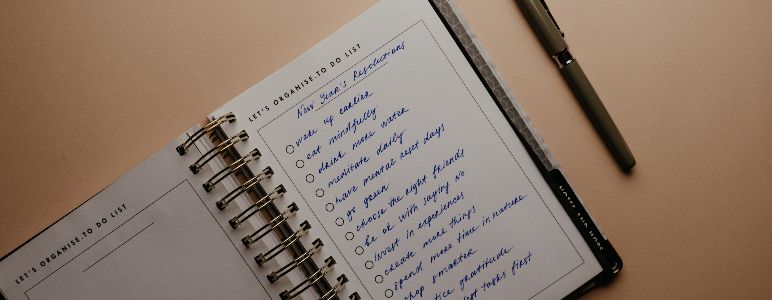 LET'S ORGANISE-TO DO LIST
LET'S ORGANISE-TO DO LIST
New Year's Resolutions
wake up earlier
eat mindfully
drink more water
meditate daily
have mental reset days
go green
choose the right friends
be ok with saying no
invest in experiences
create more things
spend more time in nature
shop smarter
tice gratitude
tasks first
NOTES AND MORE